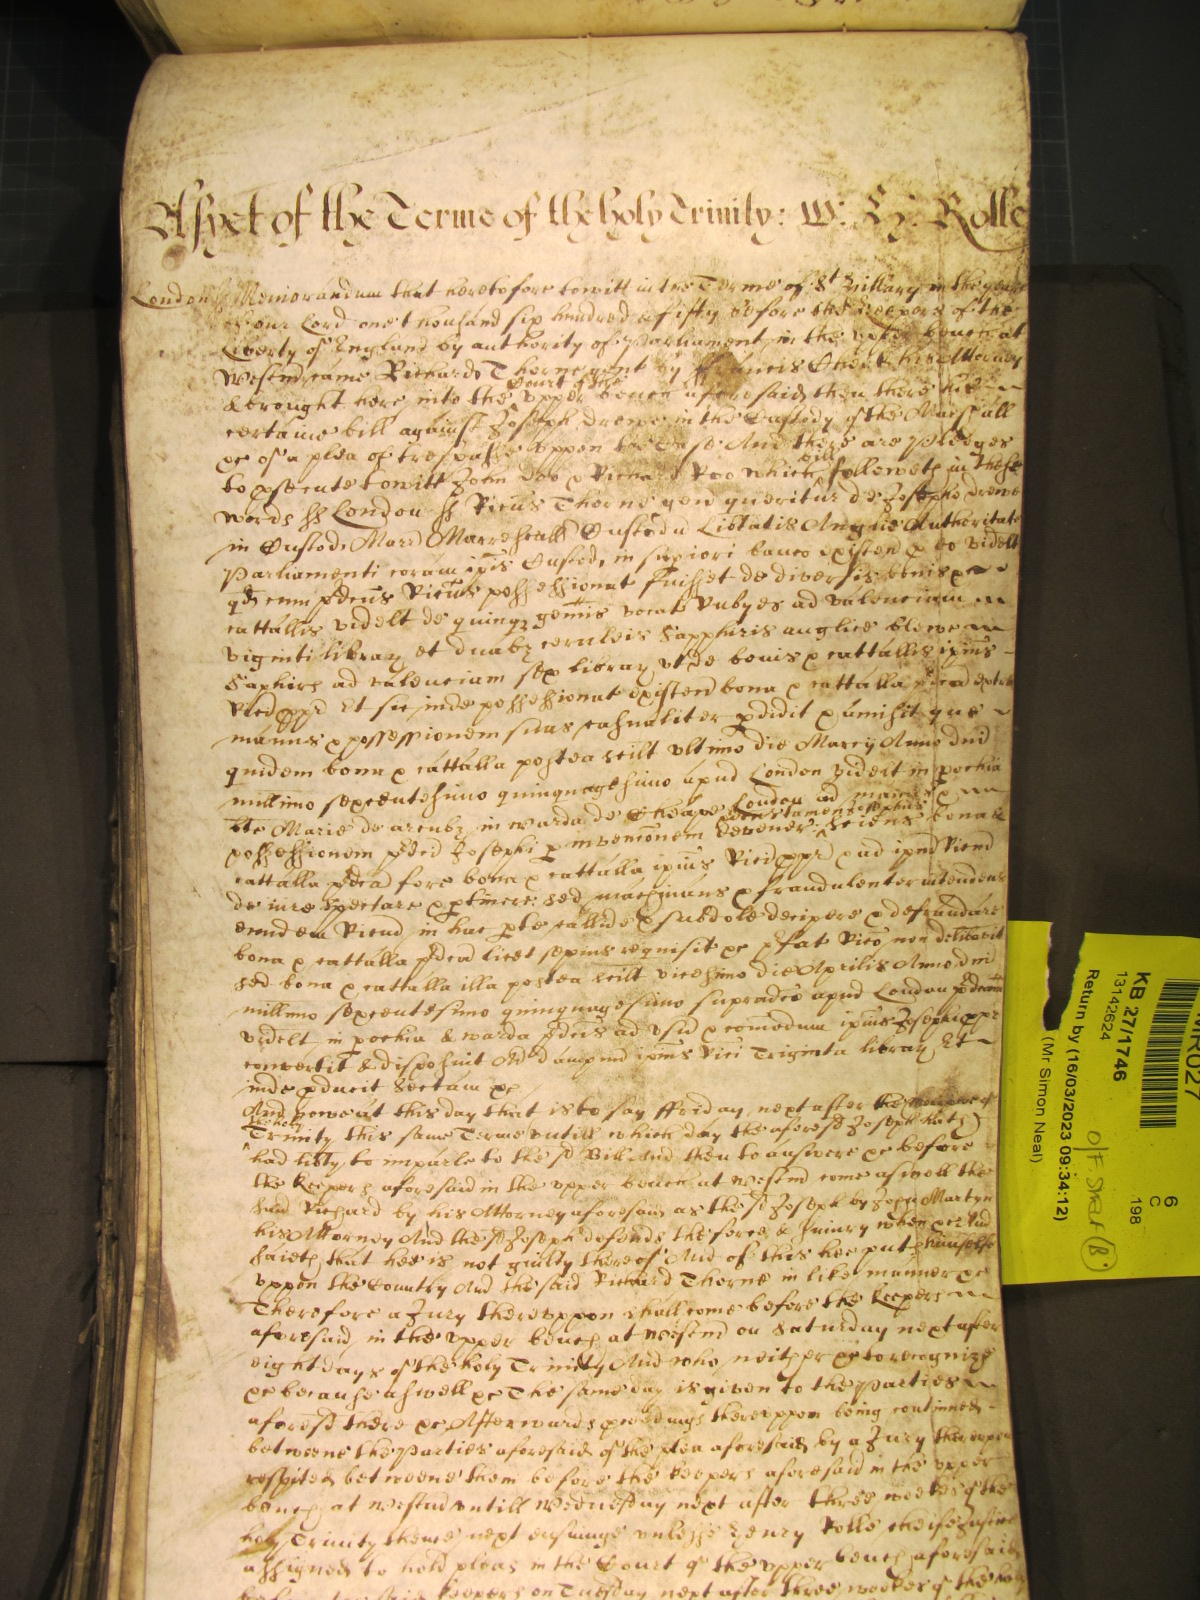 As yet of the Terme of the holy Trinity: W: Hen: Rolle
London ss Memorandum that heretofore towitt in the Terme of St Hillary in the yeare
of our Lord one thousand six hundred & fifty before the Keepers of the
Liberty of England by authority of Parliament in the upper bench at
Westm came Richard Thorne gent by Francis his Attorney
& brought here into the Court of the upper bench aforesaid then there his
certaine bill against Joseph Drewe in the Custody of the Marshall
xc of a plea of trespasse uppon the Case And there are Pledges
to psecute towitt John Doo & Richard Roo which bill followeth in these
words ss London ss Ricus Thorne gen queritur de Josepho Drewe
in Custod Marr Marrescalli Custodu Libtatis Anglie Authoritate
Parliamenti coram ipis Custod in supiori banco existen p eo videlt
qd cum pdcus Ricus possessionat fuisset de diversis bonis &
cattallis videlt de quinqz gemis vocat Rubyes ad valenciam
viginti librar et duabz ceruleis Sapphiris anglice blewe
Saphirs ad valenciam sex librar ut de bonis & cattallis ipius
Ricd ppr Et sic inde possessionat existen bona & cattalla pdca extra
manus & possessionem suas casualiter pdidit & amisit que
quidem bona & cattalla postea scilt ultimo die Marcij Anno dni
millimo sexcentesimo quinquagesimo apud London videlt in pochia
bte Marie de arcubz in warda de Cheape London ad manus &
possessionem pdci Josephi p invenconem devener pdcus tamen Josephus sciens bona &
cattalla pdca fore bona & cattalla ipius Rici ppr & ad ipm Ricum
de iure spectare & ptinere sed machinans & fraudulenter intendens
eundem Ricum in hac pte callide & subdole decipere & defraudare
bona & cattalla pdca licet sepius requisit xc pfat Rico non delibavit
sed bona & cattalla illa postea scilt vicesimo die Aprilis Anno dni
millimo sexcentesimo quinquagesimo supradco apud London pdcam
videlt in pochia & warda pdcis ad usu & comodum ipius Josephi ppr
convertit & disposuit Ad dampnu ipius Rici Triginta librar Et
inde pducit sectam xc
And nowe at this day that is to say ffriday next after the morrowe of
the holy Trinity this same Terme untill which day the aforesd Joseph hath
had liberty to imparle to the sd Bill And then to answere xc before
the Keepers aforesaid in the upper bench at Westm come aswell the
said Richard by his Attorney aforesaid as the sd Joseph by John Martyn
his Attorney And the sd Joseph defends the force & Iniury when xc And
saieth that hee is not guilty thereof And of this hee putts himselfe
uppon the Country And the said Richard Thorne in like manner xc
Therefore a Jury thereuppon shall come before the Keepers
aforesaid in the upper bench at Westm on Saturday next after
eight dayes of the holy Trinity And who neither xc to recognize
xc because aswell xc The same day is given to the Parties
aforesd there xc Afterwards pcedings thereuppon being continued
betweene the Parties aforesaid of the plea aforesaid by a Jury thereuppon
respited betweene them before the Keepers aforesaid in the upper
bench at Westm untill Wednesday next after three weekes of the
holy Trinity thence next ensuinge unlesse Henry Rolle cheife Justice
assigned to hold pleas in the Court of the upper bench aforesaid
before the said Keepers on Tuesday next after three weekes of the
MR027
6
C
198
KB 27/1746
13142624
Return by (16/03/2023 09:34:12)
(Mr Simon Neal)